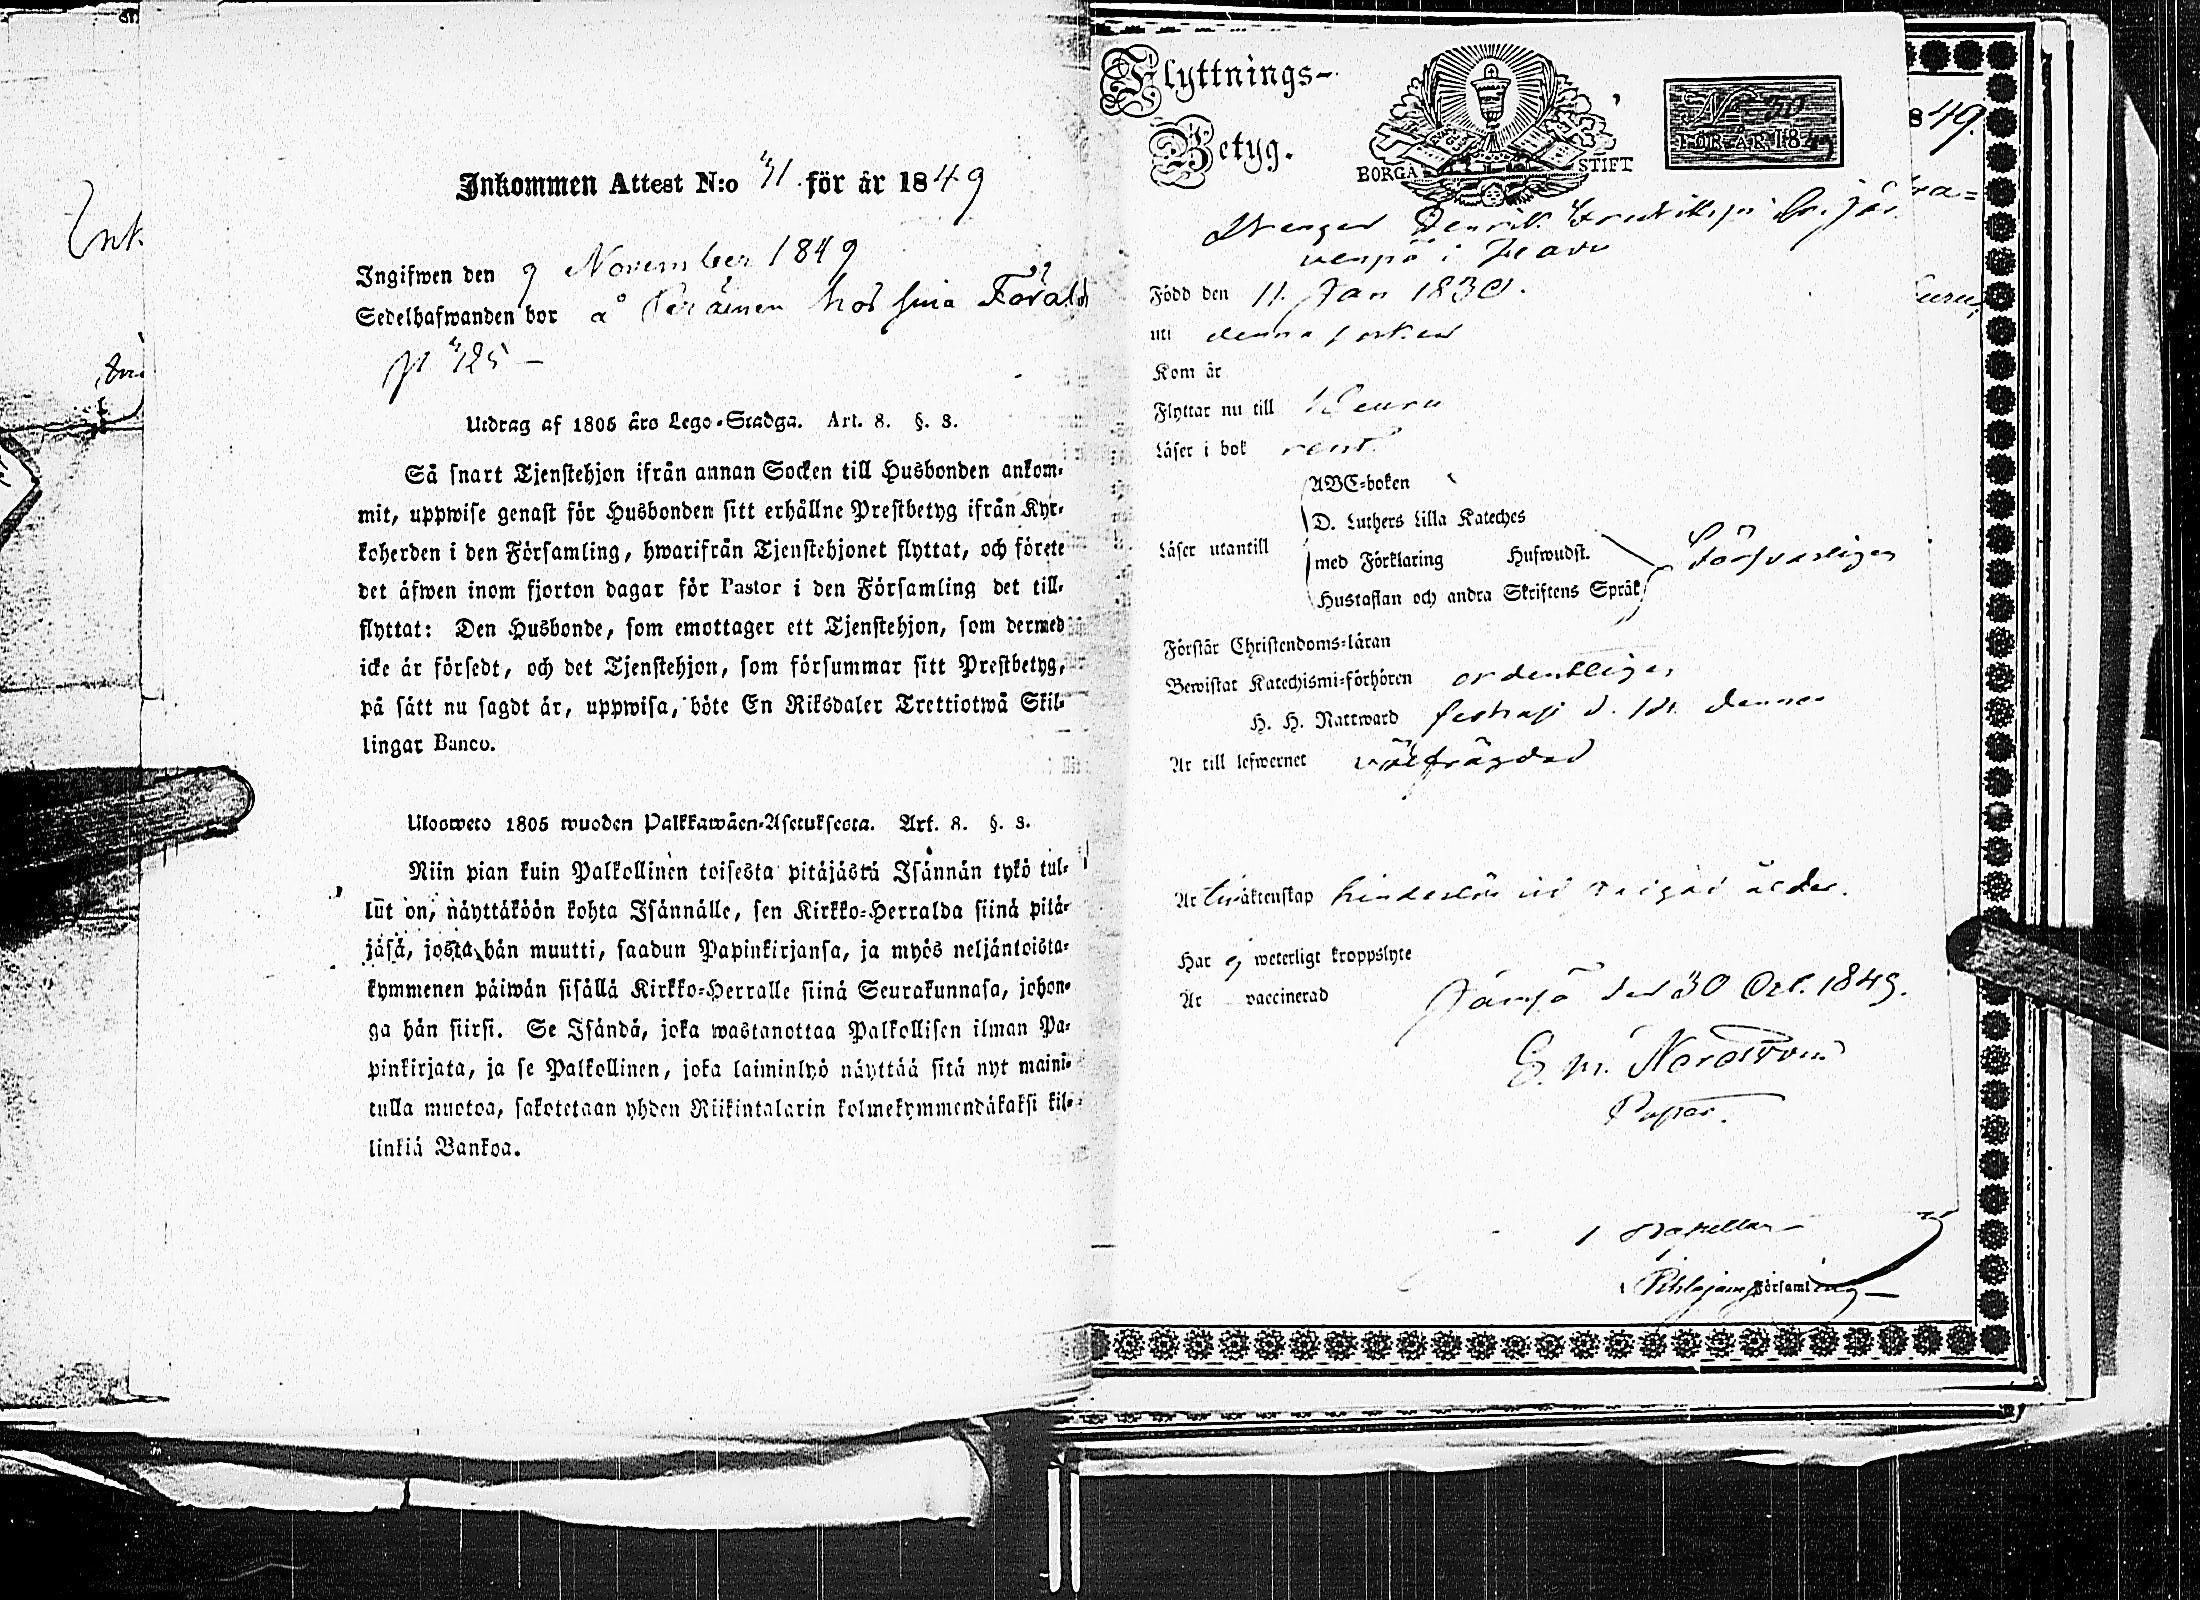 Inkommen Attest N:o 41 för år 1849
Ingifwen den 9 November 1849
Sedelhafwanden bor å hos sina Föräld
p 425 –
Utdrag af 1805 års Lego-Stadga. Art. 8. §. 3.
Så snart Tjenstehjon ifrån annan Socken till Husbonden ankom-
mit, uppwise genast för Husbonden sitt erhållne Prestbetyg ifrån Kyr-
koherden i den Församling, hwarifrån Tjenstehjonet flyttat, och förete
det äfwen inom fjorton dagar för Pastor i den Församling det till-
flyttat: Den Husbonde, som emottager ett Tjenstehjon, som dermed
icke är försedt, och det Tjenstehjon, som försummar sitt Prestbetyg,
på sätt nu sagdt är, uppwisa, böte En Riksdaler Trettiotwå Skil-
lingar Banco.
Ulosweto 1805 wuoden Palkkawäen-Asetuksesta. Art. 8. §. 3.
Niin pian kuin Palkollinen toisesta pitäjästä Isännän tykö tul-
lut on, näyttäköön kohta Isännälle, sen Kirkko-Herralda siinä pitä-
jäsä, josta hän muutti, saadun Papinkirjansa, ja myös neljäntoista-
kymmenen päiwän sisällä Kirkko-Herralle siinä Seurakunnasa, johon-
ga hän siirsi. Se Isändä, joka wastanottaa Palkollisen ilman Pa-
pinkirjata, ja se Palkollinen, joka laiminlyö näyttää sitä nyt maini-
tulla muotoa, sakotetaan yhden Riikintalarin kolmekymmendäkaksi kil-
linkiä Bankoa.
Flyttnings-
Betyg.
BORGÅ STIFT
N:o
FÖR ÅR 1849
Drengen Henrik
i
Född den 11 Jan 1830.
uti denna socken
Kom år
Flyttar nu till Keuru
Läser i bok rent
Läser utantill
ABC-boken
D. Luthers Lilla Kateches
med Förklaring Hufwudst.
Hustaflan och andra Skriftens Språk
Försvarligen
Förstår Christendoms-läran
Bewistat Katechismi-förhören ordentligen
H. H. Nattward senast d. 14 dennes
Är till lefwernet välfrägdad
Är till äktenskap hinderlös
Har ej weterligt kroppslyte
Är vaccinerad
Jämsä den 30 Oct. 1849.
G. M. Nordström
Pastor.
Församling